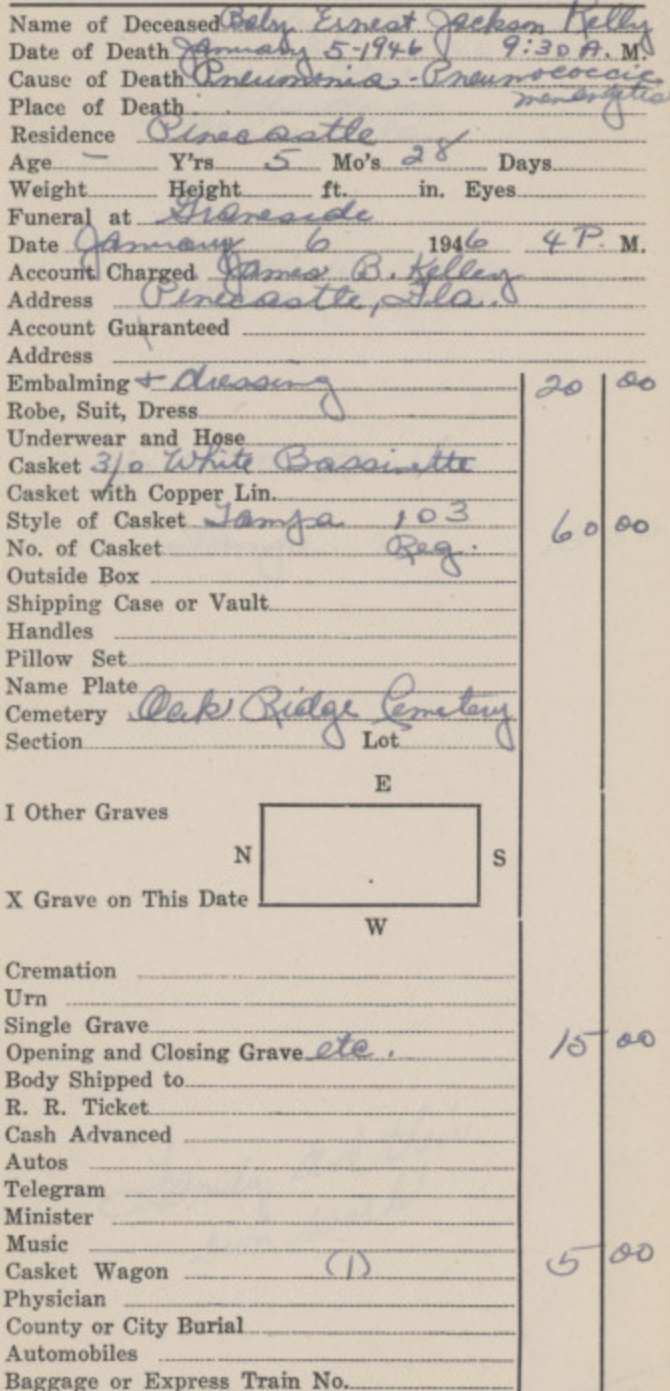 Name of Deceased Baby Ernest Jackson Kelly
Date of Death January 5-1946 9:30 A. M.
Cause of Death Pneumonia - Pneumococcic
Place of Death
Residence Pinecastle
Age - Y'rs 5 Mo's 28 Days
Weight Height ft. in. Eyes
Funeral at Graveside
Date January 6 1946 4 P. M.
Account Charged James B. Kelley
Address Pinecastle, Fla.
Account Guaranteed
Address
Embalming + dressing 20 00
Robe, Suit, Dress
Underwear and Hose
Casket 3/0 White Bassinette
Casket with Copper Lin.
Style of Casket Tampa 103 60 00
No. of Casket Reg.
Outside Box
Shipping Case or Vault
Handles
Pillow Set
Name Plate
Cemetery Oak Ridge Cemetery
Section Lot
E
I Other Graves
N S
X Grave on This Date
W
Cremation
Urn
Single Grave
Opening and Closing Grave etc. 15 00
Body Shipped to
R. R. Ticket
Cash Advanced
Autos
Telegram
Minister
Music
Casket Wagon (1) 5 00
Physician
County or City Burial
Automobiles
Baggage or Express Train No.